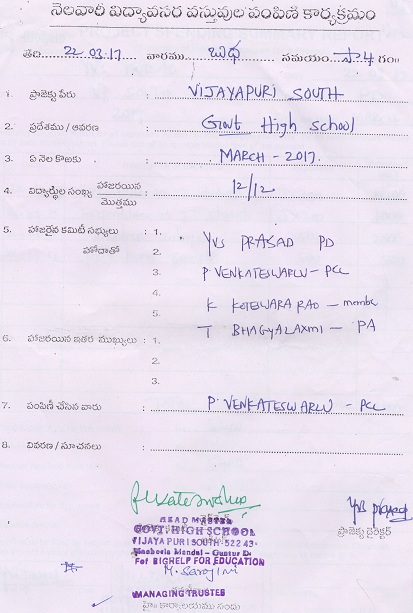 నెలవారీ విద్యావసర వస్తువుల పంపిణీ కార్యక్రమం
తేది 22.03.17 వారము బుధ సమయం సా.4 గం॥
1. ప్రాజెక్టు పేరు : VIJAYAPURI SOUTH
2. ప్రదేశము / ఆవరణ : Govt High school
3. ఏ నెల కొఱకు : MARCH - 2017.
4. విద్యార్థుల సంఖ్య హాజరయిన : 12/12
మొత్తము
5. హాజరైన కమిటీ సభ్యులు : 1. YVS PRASAD PD
హోదాతో 2.
3. P VENKATESWARLU - PCC
4.
5. K KOTESWARA RAO - member
T BHAGYALAXMI - PA
6. హాజరయిన ఇతర ముఖ్యులు : 1.
2.
3.
7. పంపిణీ చేసిన వారు : P. VENKATESWARLU - PCC
8. వివరణ / సూచనలు :
YVS prasad
ప్రాజెక్టు డైరెక్టర్
HEAD MASTER
GOVT. HIGH SCHOOL
VIJAYAPURI SOUTH-522 43
Macherla Mandal - Guntur D
For BIGHELP FOR EDUCATION
M. Sarojini
MANAGING TRUSTEE
హై. కార్యాలయము నందు